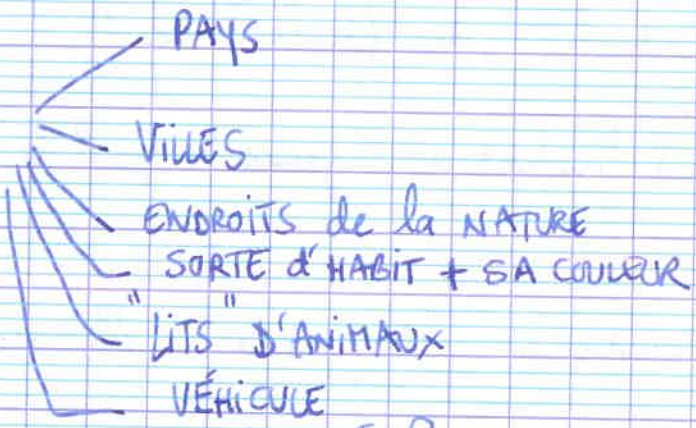 PAYS
VILLES
ENDROITS de la NATURE
SORTE d'HABIT + SA COULEUR
"LITS" D'ANIMAUX
VÉHICULE